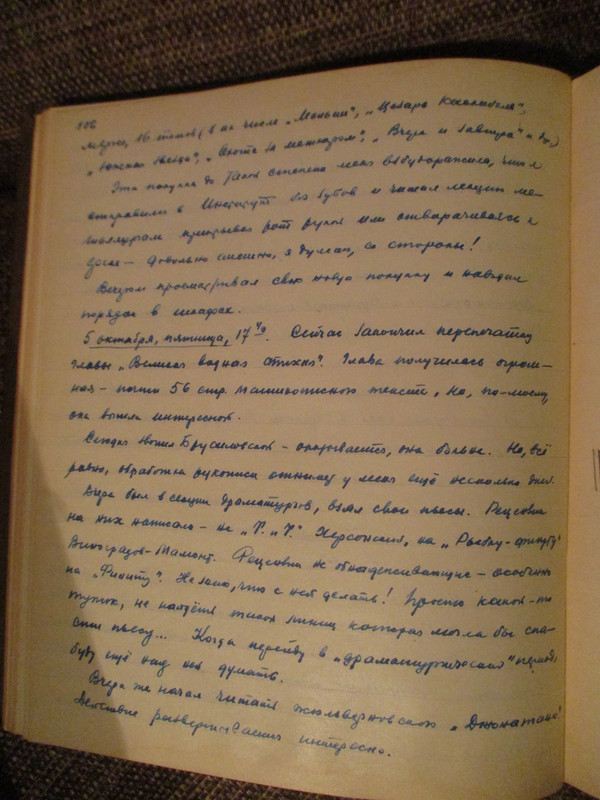 106
16 томов (в их числе „Маньин“, „Цезарь Каскабель“,
„Южная звезда“, „Охота за метеором“, „Вчера и завтра“ и др.)
Эта покупка до такой степени меня взбудоражила, что я
отправился в Институт без зубов и читал лекции ме-
таллургам прикрывая рот рукой или отворачиваясь к
доске – довольно смешно, я думаю, со стороны!
Вечером просматривал свою новую покупку и наводил
порядок в шкафах.
5 октября, пятница, 17 ч. Сейчас закончил перепечатку
главы „Великая водная стихия“. Глава получилась огром-
ная – почти 56 стр. машинописного текста, но, по-моему,
она вышла интересной.
Сегодня звонил Брусиловской – оказывается, она больна. Но, всё
равно, обработка рукописи отнимет у меня ещё несколько дней.
Вчера был в секции драматургов, взял свои пьесы. Рецензии
на них написали – на „Т. и Т.“ Херсонский, на „Рыбку-финиту“
Виноградов-Мамонт. Рецензии не обнадеживающие – особенно
на „Финиту“. Не знаю, что с ней делать! Просто какой-то
тупик, не найдётся такая линия которая могла бы спа-
сти пьесу... Когда перейду в „драматургический“ период,
буду ещё над ней думать.
Вчера же начал читать жюльверновского „Джонатана“!
Действие развертывается интересно.